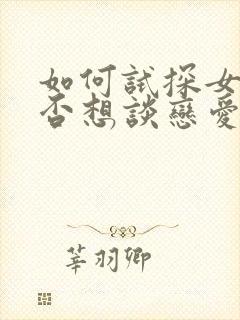 如何試探女
否想談戀愛
莘羽卿